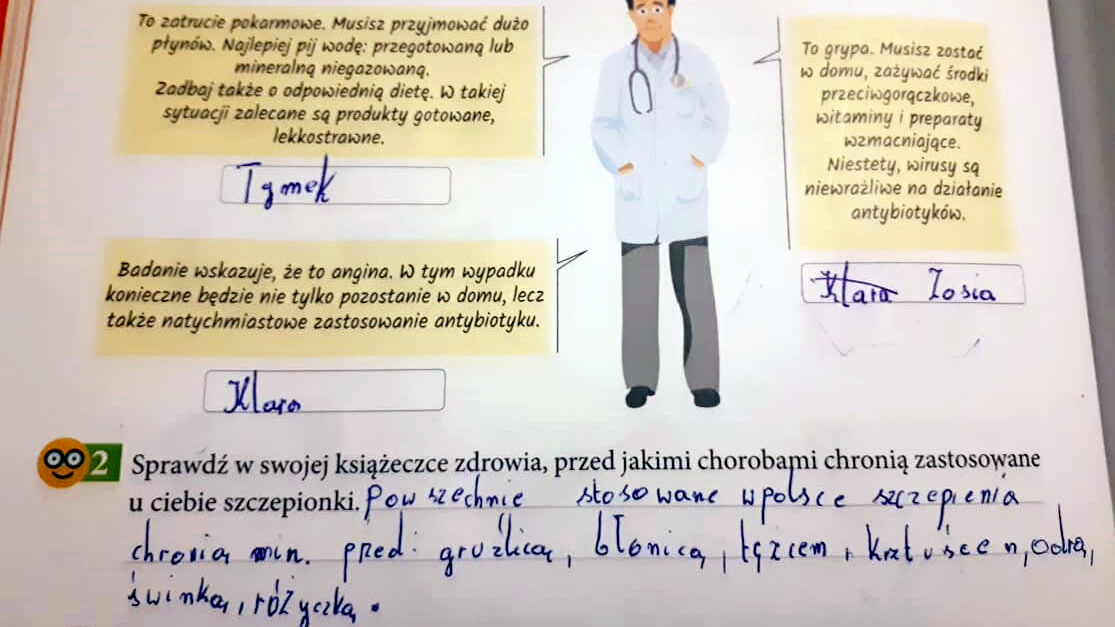 To zatrucie pokarmowe. Musisz przyjmować dużo
płynów. Najlepiej pij wodę: przegotowaną lub
mineralną niegazowaną.
Zadbaj także o odpowiednią dietę. W takiej
sytuacji zalecane są produkty gotowane,
lekkostrawne.
Tymek
To grypa. Musisz zostać
w domu, zażywać środki
przeciwgorączkowe,
witaminy i preparaty
wzmacniające.
Niestety, wirusy są
niewrażliwe na działanie
antybiotyków.
Klara Zosia
Badanie wskazuje, że to angina. W tym wypadku
konieczne będzie nie tylko pozostanie w domu, lecz
także natychmiastowe zastosowanie antybiotyku.
Klara
2 Sprawdź w swojej książeczce zdrowia, przed jakimi chorobami chronią zastosowane
u ciebie szczepionki. Powszechnie stosowane wpolsce szczepienia
chronią min. przed: gruźlicą, błonicą, tężcem, krztuścem, odrą,
świnką, różyczką.